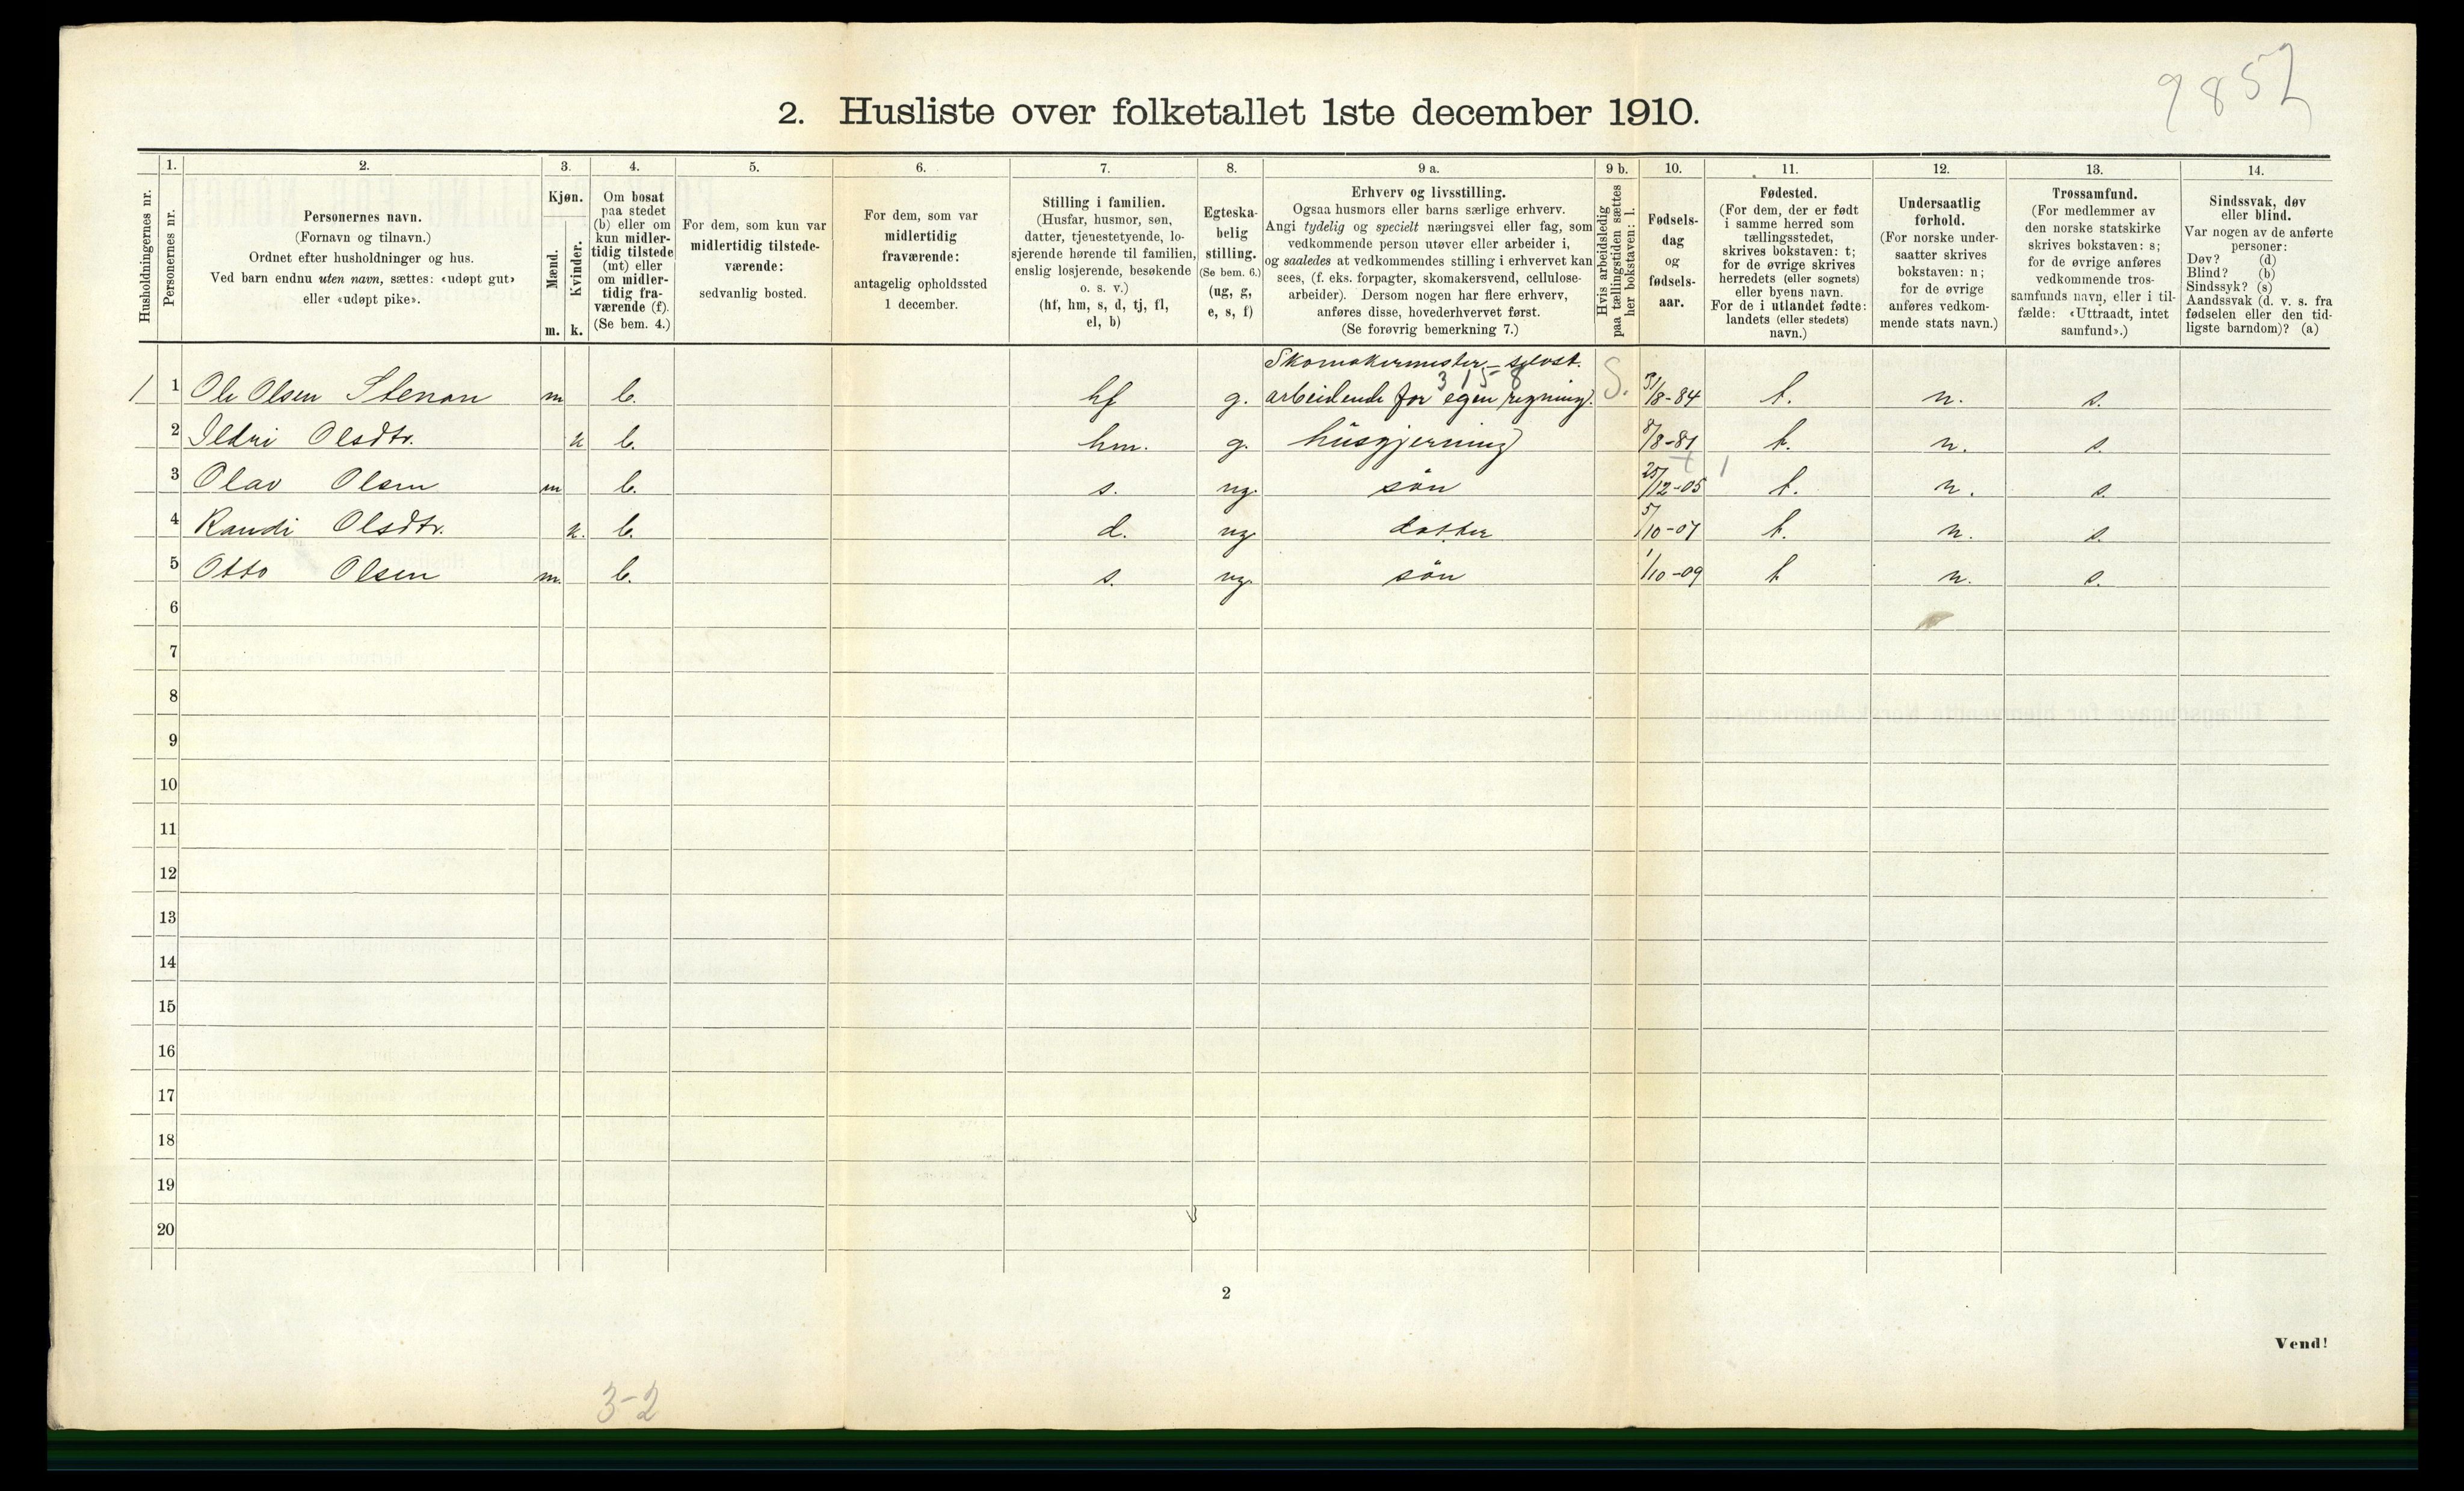 9852
2. Husliste over folketallet 1ste december 1910.
Husholdningernes nr.
1.
Personernes nr.
2.
Personernes navn.
(Fornavn og tilnavn.)
Ordnet efter husholdninger og hus.
Ved barn endnu uten navn, sættes: «udøpt gut»
eller «udøpt pike».
3.
Kjøn.
Mænd.
Kvinder.
m. k.
4.
Om bosat
paa stedet
(b) eller om
kun midler-
tidig tilstede
(mt) eller
om midler-
tidig fra-
værende (f).
(Se bem. 4.)
5.
For dem, som kun var
midlertidig tilstede-
værende:
sedvanlig bosted.
6.
For dem, som var
midlertidig
fraværende:
antagelig opholdssted
1 december.
7.
Stilling i familien.
(Husfar, husmor, søn,
datter, tjenestetyende, lo-
sjerende hørende til familien,
enslig losjerende, besøkende
o. s. v.)
(hf, hm, s, d, tj, fl,
el, b)
8.
Egteska-
belig
stilling.
(Se bem. 6.)
(ug, g,
e, s, f)
9 a.
Erhverv og livsstilling.
Ogsaa husmors eller barns særlige erhverv.
Angi tydelig og specielt næringsvei eller fag, som
vedkommende person utøver eller arbeider i,
og saaledes at vedkommendes stilling i erhvervet kan
sees, (f. eks. forpagter, skomakersvend, cellulose-
arbeider). Dersom nogen har flere erhverv,
anføres disse, hovederhvervet først.
(Se forøvrig bemerkning 7.)
9 b.
Hvis arbeidsledig
paa tællingstiden sættes
her bokstaven: l.
10.
Fødsels-
dag
og
fødsels-
aar.
11.
Fødested.
(For dem, der er født
i samme herred som
tællingsstedet,
skrives bokstaven: t;
for de øvrige skrives
herredets (eller sognets)
eller byens navn.
For de i utlandet fødte:
landets (eller stedets)
navn.)
12.
Undersaatlig
forhold.
(For norske under-
saatter skrives
bokstaven: n;
for de øvrige
anføres vedkom-
mende stats navn.)
13.
Trossamfund.
(For medlemmer av
den norske statskirke
skrives bokstaven: s;
for de øvrige anføres
vedkommende tros-
samfunds navn, eller i til-
fælde: «Uttraadt, intet
samfund».)
14.
Sindssvak, døv
eller blind.
Var nogen av de anførte
personer:
Døv? (d)
Blind? (b)
Sindssyk? (s)
Aandssvak (d. v. s. fra
fødselen eller den tid-
ligste barndom)? (a)
Skomakermester – selvst.
3 15 8
1 1 Ole Olsen Stenan m b. hf g. arbeidende for egen regning. S. 31/8-84 t. n. s.
2 Ildri Olsdtr. k b. hm. g. husgjerning 8/8-81 t. n. s.
3 Olav Olsen m b. s. ug. søn 25/12-05 t. n. s.
4 Randi Olsdtr. k. b. d. ug datter 5/10-07 t. n. s.
5 Otto Olsen m. b. s. ug. søn 1/10-09 t n. s.
6
7
8
9
10
11
12
13
14
15
16
17
18
19
20
2
Vend!
3-2